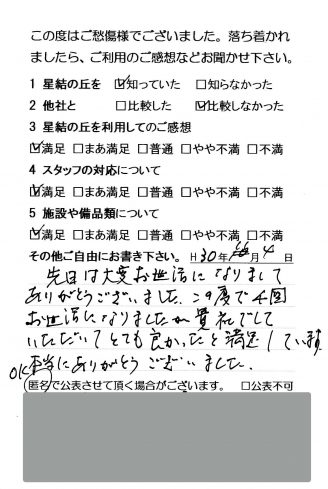 この度はご愁傷様でございました。落ち着かれ
ましたら、ご利用のご感想などお聞かせ下さい。
1 星結の丘を ☑知っていた □知らなかった
2 他社と □比較した ☑比較しなかった
3 星結の丘を利用してのご感想
☑満足 □まあ満足 □普通 □やや不満 □不満
4 スタッフの対応について
☑満足 □まあ満足 □普通 □やや不満 □不満
5 施設や備品類について
☑満足 □まあ満足 □普通 □やや不満 □不満
その他ご自由にお書き下さい。 H30年 月4日
先日は大変お世話になりまして
ありがとうございました。この度で4回
お世話になりましたが貴社でして
いただいてとても良かったと満足しています
本当にありがとうございました。
OK 匿名で公表させて頂く場合がございます。 □公表不可